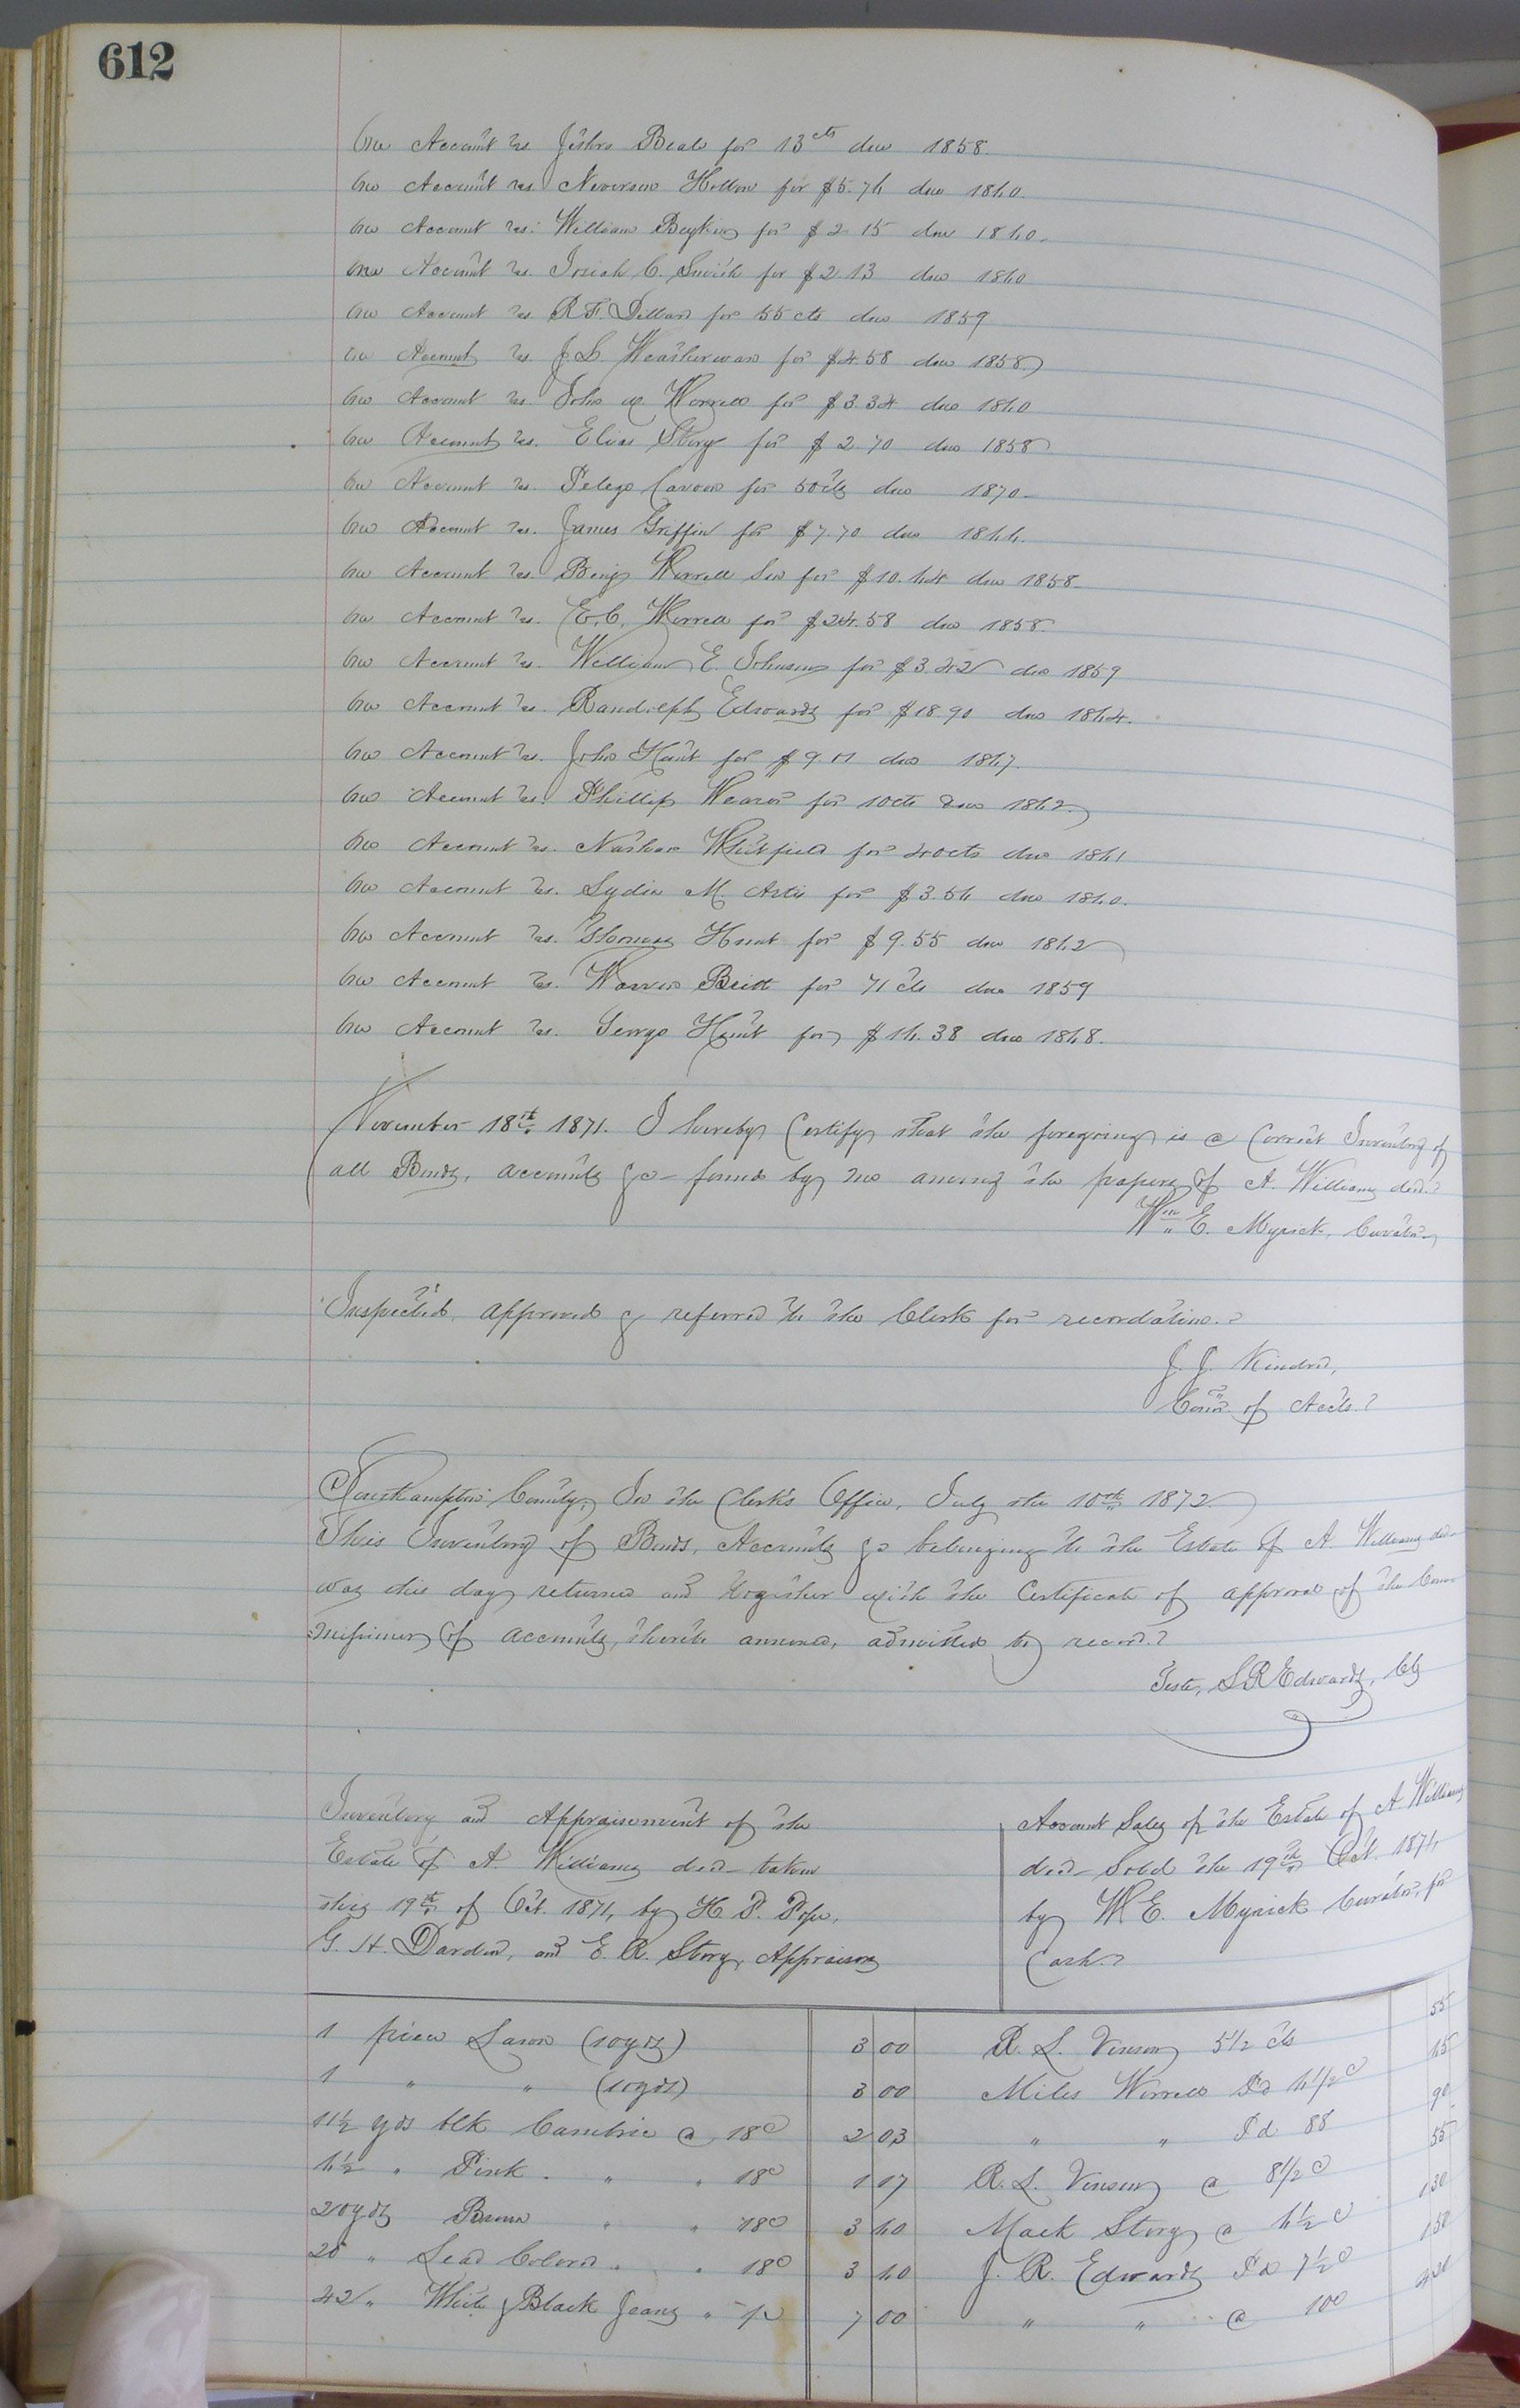 612
One Account vs. Jethro Beale for 13cts due 1858.
One Account vs. Neverson Hollow for $5.76 due 1860.
One Account vs. William Boykin for $2.15 due 1860.
One Account vs. Josiah C. Smith for $2.13 due 1860
One Account vs. R.F. Dillard for 55 cts due 1859
One Account vs. J.L. for $4.58 due 1858
One Account vs. John W. Worrell for $3.34 due 1860
One Account vs. Elias Story for $2.70 due 1858
One Account vs. for 50cts due 1870.
One Account vs. James Griffin for $7.70 due 1866.
One Account vs. Benj Worrell Sen for $10.64 due 1858.
One Account vs. E.C. Worrell for $24.58 due 1858.
One Account vs. William E. Johnson for $3.42 due 1859
One Account vs. Randolph Edwards for $18.90 due 1864.
One Account vs. John Hunt for $9. due 1867.
One Account vs. Phillip Weaver for 10cts due 1862.
One Account vs. Nathan Whitfield for 40cts due 1861
One Account vs. Lydia M. Artis for $3.56 due 1860.
One Account vs. Thomas Hunt for $9.55 due 1862
One Account vs. Warren Britt for 71 cts due 1859
One Account vs. George Hunt for $16.38 due 1868.
November 18th 1871. I hereby Certify that the foregoing is a Correct Inventory of
all Bonds, accounts &c found by me among the papers of A. Williams decd.
Wm E. Myrick, Curator
Inspected, approved & referred to the Clerk for recordation.
J. J. Kindred,
Comr. of Accts.
Southampton County, In the Clerk's Office, July the 10th 1872.
This Inventory of Bonds, Accounts &c belonging to the Estate of A. Williams decd
was this day returned and together with the Certificate of approval of the Com-
missioner of accounts, thereto annexed, admitted to record.
Teste, L R Edwards, Clk
Inventory and Appraisement of the
Estate of A. Williams decd taken
this 19th of Oct. 1871, by H. P. Pope,
G. H. Darden, and E. R. Story, Appraisers
Account Sales of the Estate of A. Williams
decd Sold the 19th Oct. 1871,
by W E. Myrick Curator, for
Cash.
1 piece Lawn (10yds) 3 00 R. L. Vinson 5 1/2 cts 55
1 " " (10yds) 3 00 Miles Worrell Pd 6 1/2c 65
11 1/2 yds blk Cambric @ 18c 2 03 " " Pd 8c 90
6 1/2 " Pink " " 18c 1 17 R. L. Vinson @ 8 1/2c 55
20yds Brown " " 18c 3 60 Mack Story @ 6 1/2c 1 30
20 " Lead Colored " " 18c 3 60 J. R. Edwards Pd 7 1/2c 1 50
42 " White & Black Jeans " 7 00 " " @ 10c 4 20